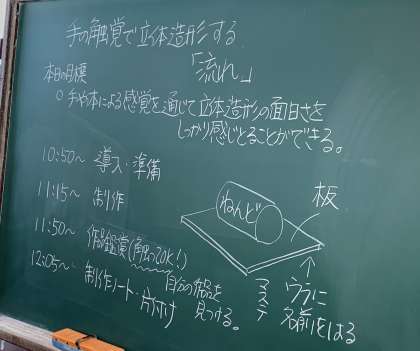 手の触覚で立体造形する
「流れ」
本日の目標
○手や体による感覚を通じて立体造形の面白さを
しっかり感じとることができる。
10:50〜 導入・準備
11:15〜 制作
11:50〜 作品鑑賞(触ってOK!)
自分の作品を
見つける。
12:05〜 制作ノート・片付け
ねんど
板
ウラに
名前をはる